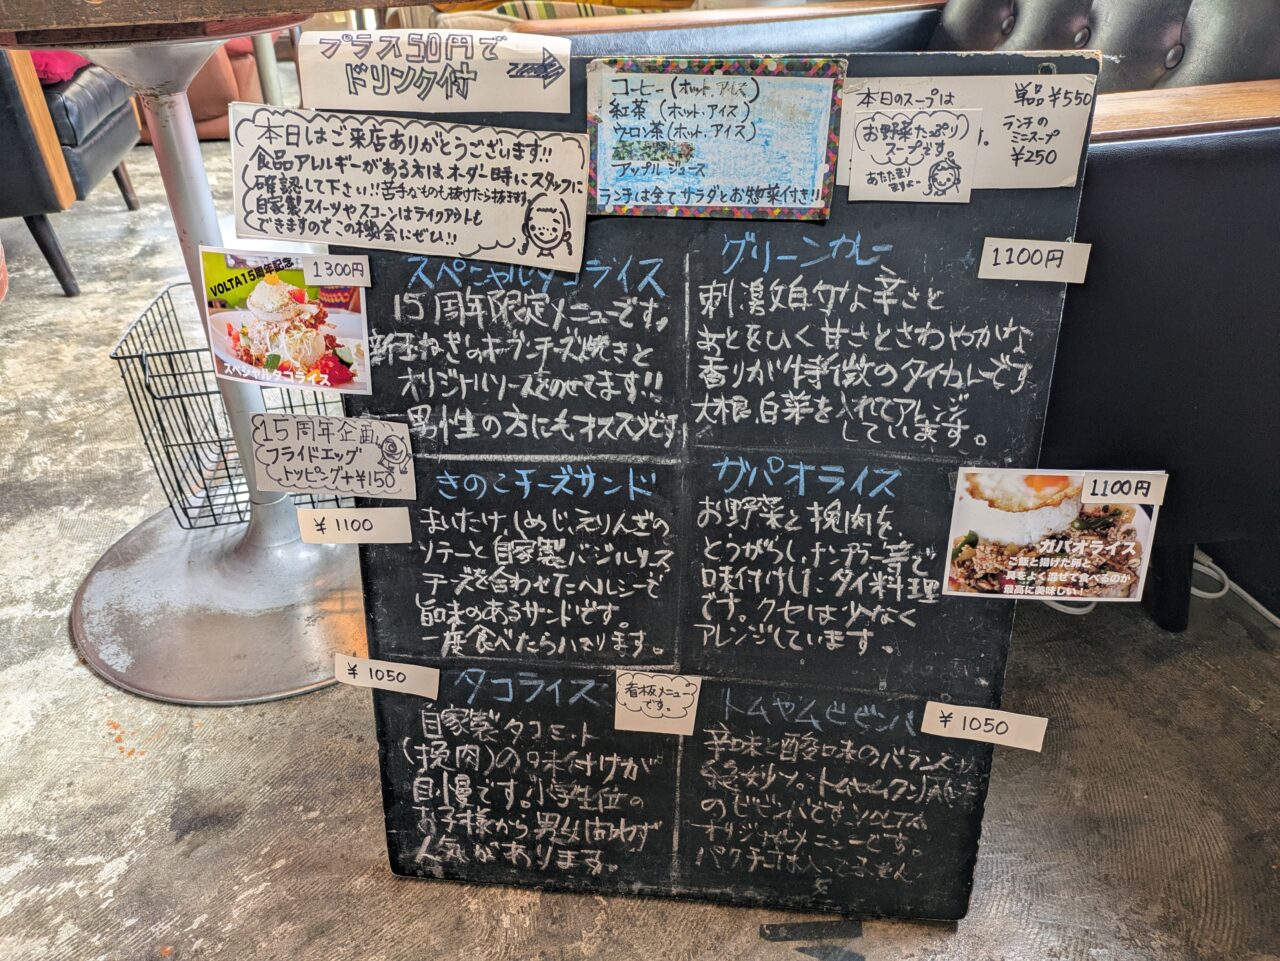 プラス50円で
ドリンク付
本日はご来店ありがとうございます!!
食品アレルギーがある方はオーダー時にスタッフに
確認して下さい!!苦手なものも抜けたら抜きます。
自家製スイーツやスコーンはテイクアウトも
できますのでこの機会にぜひ!!
コーヒー(ホット.アイス)
紅茶(ホット.アイス)
ウーロン茶(ホット.アイス)
アップルジュース
ランチは全てサラダとお惣菜付き!!
本日のスープは
お野菜たっぷり
スープです
あたたまり
ますよー
単品¥550
ランチの
ミニスープ
¥250
VOLTA15周年記念
1300円
スペシャルタコライス
スペシャルタコライス
15周年限定メニューです。
新玉ねぎのオーブンチーズ焼きと
オリジナルソースをのせてます!!
男性の方にもオススメです
15周年企画
フライドエッグ
トッピング+¥150
グリーンカレー
1100円
刺激的な辛さと
あとをひく甘さとさわやかな
香りが特徴のタイカレーです
大根.白菜を入れてアレンジ
しています。
きのこチーズサンド
¥1100
まいたけ、しめじ、えりんぎの
ソテーと自家製バジルソース
チーズを合わせたヘルシーで
旨味のあるサンドです。
一度食べたらハマります。
ガパオライス
1100円
お野菜と挽肉を
とうがらし、ナンプラー等で
味付けした、タイ料理
です。クセは少なく
アレンジしています。
ガパオライス
ご飯と揚げた卵と
具をよく混ぜて食べるのが
最高に美味しい!
¥1050
タコライス
看板メニュー
です。
自家製タコミート
(挽肉)の味付けが
自慢です。小学生位の
お子様から男女問わず
人気があります。
トムヤムビビンバ
¥1050
辛味と酸味のバランスが
絶妙な。トムヤムクン風
のビビンバです。VOLTA
オリジナルメニューです。
パクチーは入ってません